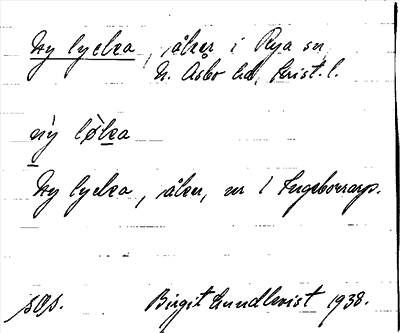 Ny lycka, åker i Rya sn
N. Åsbo hd, Krist. l.
ny̍ lø̀ka
Ny lycka, åker, nr 1 Ingeborrarp.
sgs. Birgit Lundkvist 1938.